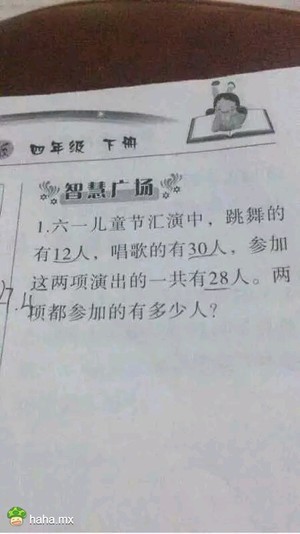 四年级 下册
智慧广场
1.六一儿童节汇演中，跳舞的
有12人，唱歌的有30人，参加
这两项演出的一共有28人。两
项都参加的有多少人？
haha.mx